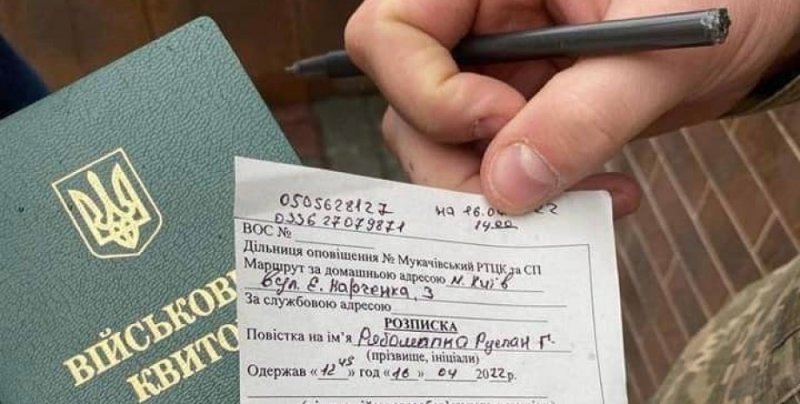 ВІЙСЬКОВ
КВИТО
0505628127
033627079871
на 16.0 22
14.00
ВОС №
Дільниця оповіщення № Мукачівський РТЦК та СП
Маршрут за домашньою адресою м. Київ
вул. Є. Харченка, 3
За службовою адресою
РОЗПИСКА
Повістка на ім'я Руслан Г.
(прізвище, ініціали)
Одержав «12 45» год «16» 04 2022р.